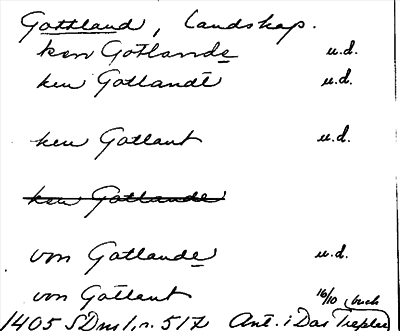 Gottland, Landskap.
ken Gotlande u.d.
ken Gotlandt u.d.
ken Gotlant u.d.
ken Gotlande
von Gotlande u.d.
von Gotlant 16/10
1405 SDns 1, n. 517 Ant. i Das Tresslerbuch